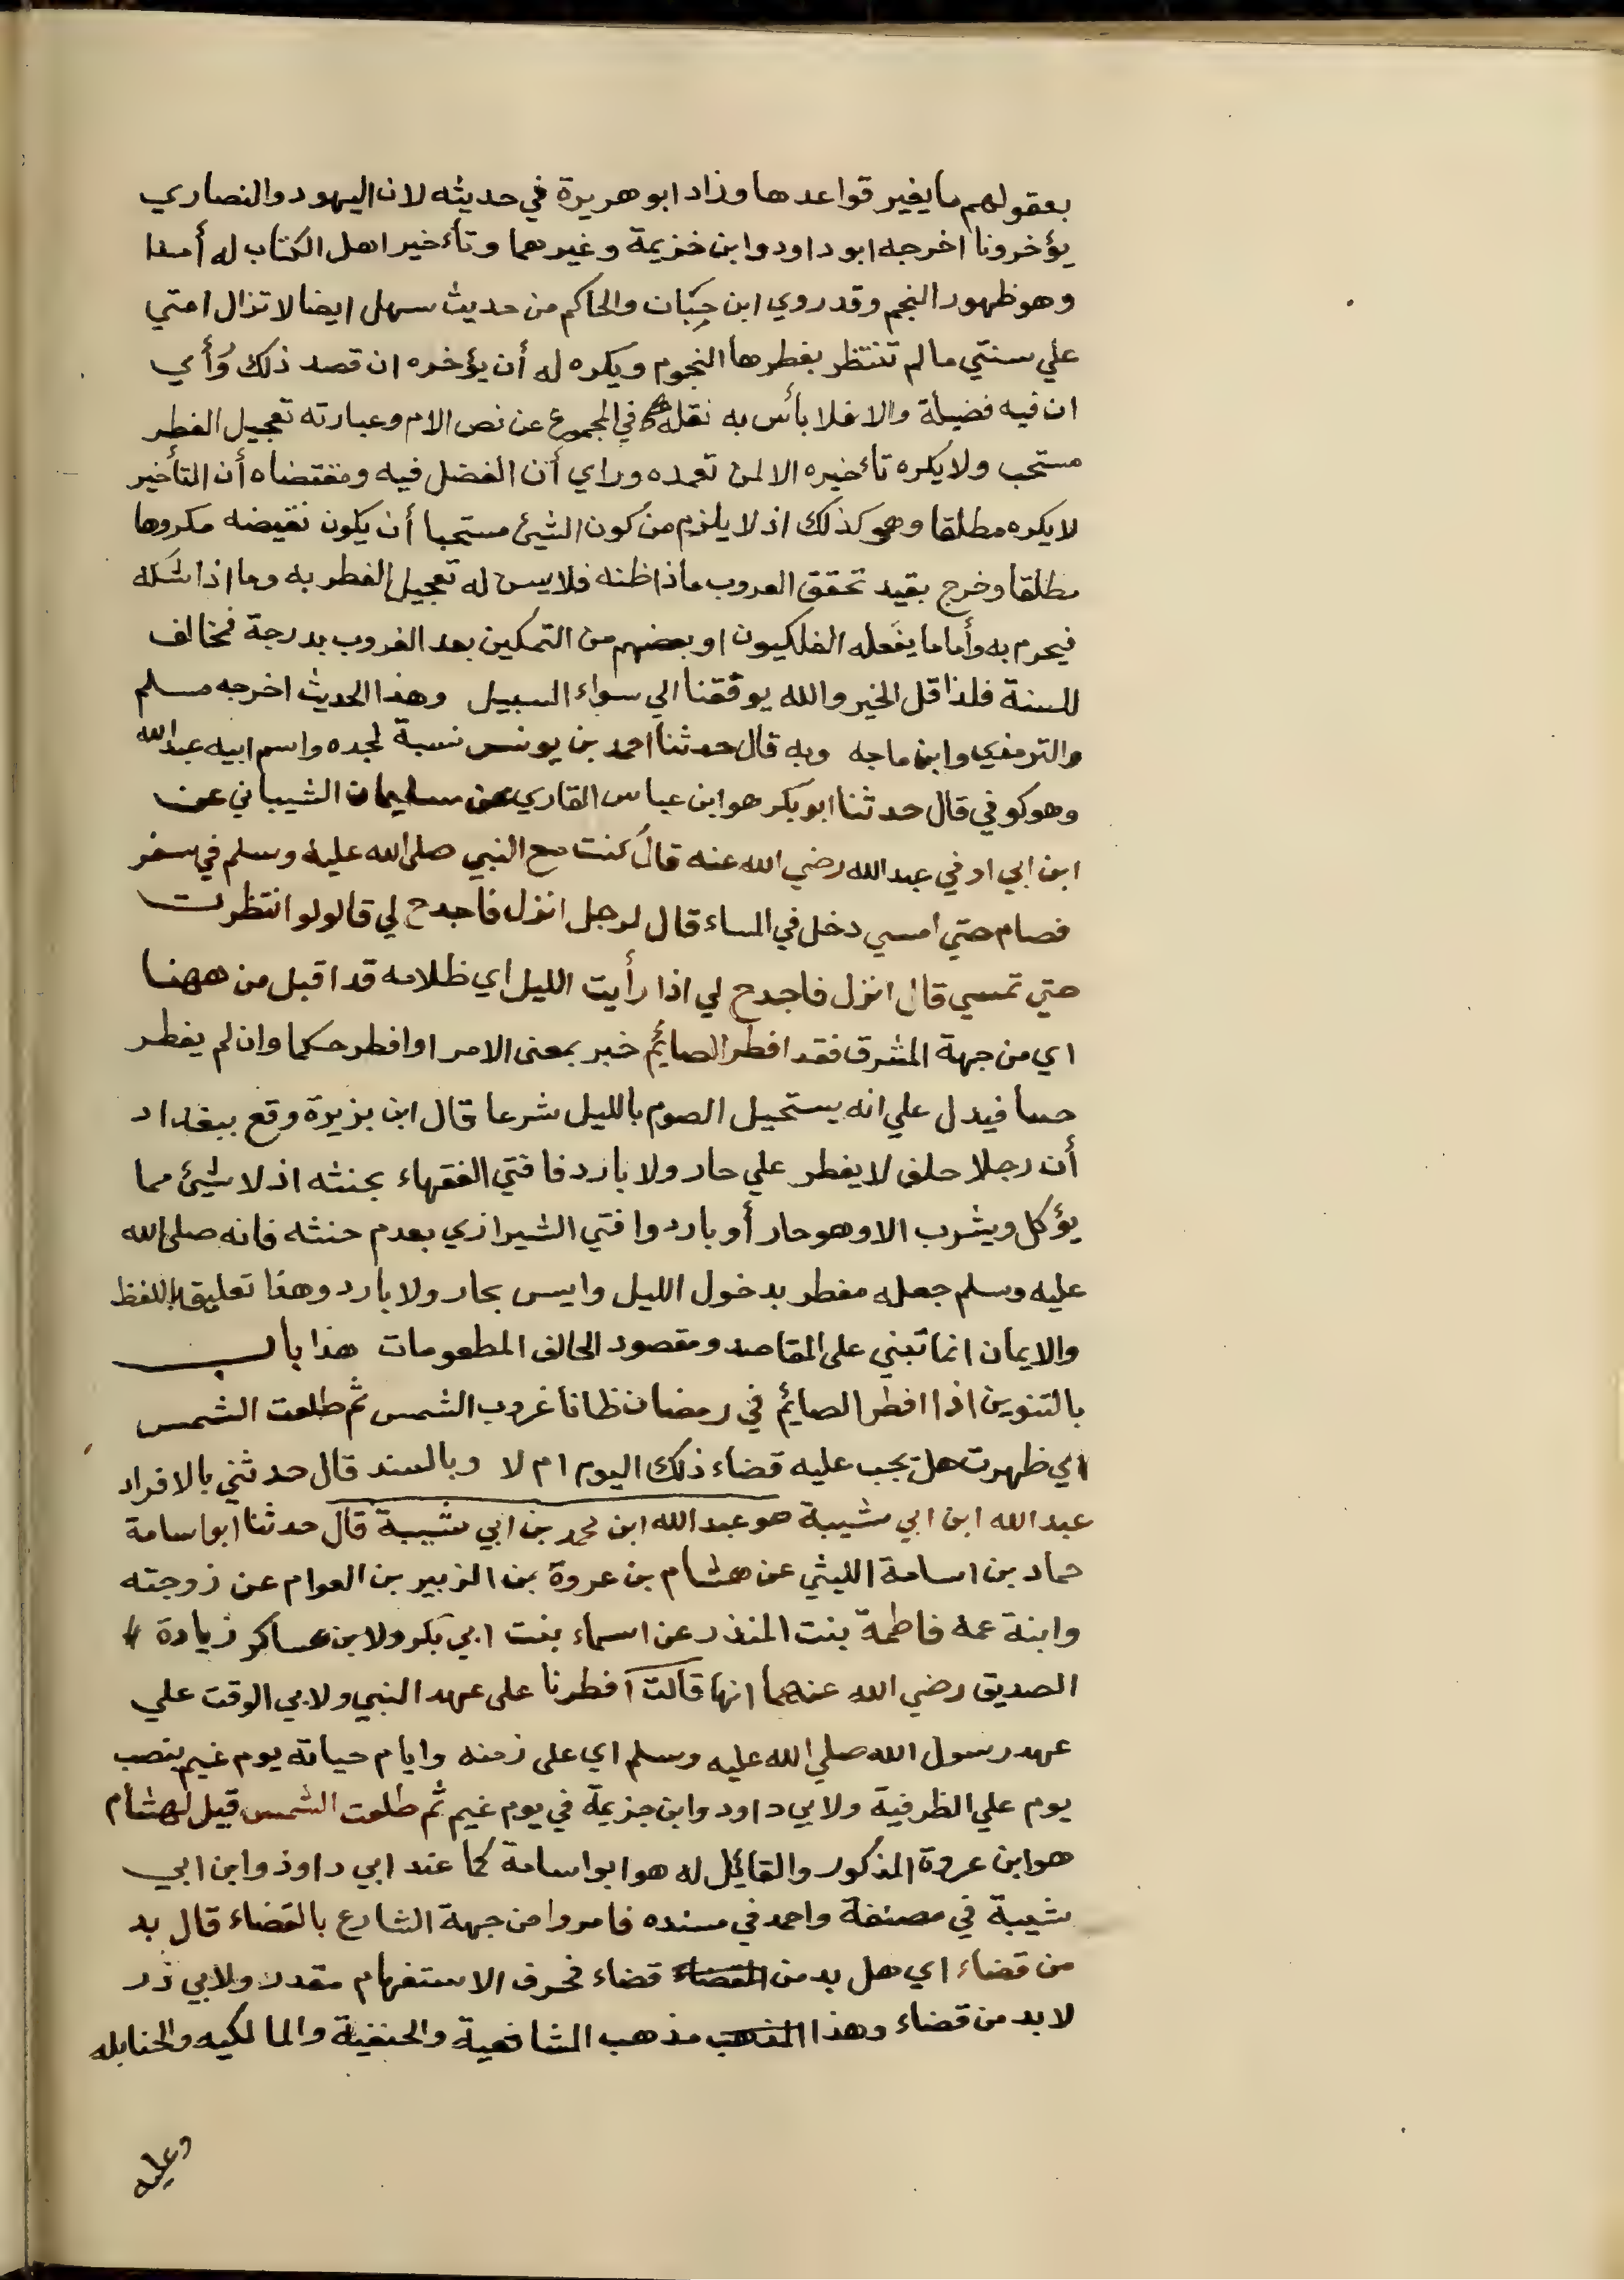 بعقولهم ما يغير قواعدها وزاد ابو هريرة في حديثه لان اليهود والنصاري
يؤخرونا اخرجه ابو داود وابن خزيمة وغيرهما وتأخير اهل الكتاب له أمدا
وهو ظهور النجم وقد روي ابن حِبّان والحاكم من حديث سهل ايضا لا تزال امتي
علي سنتي ما لم تنتظر بفطرها النجوم ويكره له أن يؤخره ان قصد ذلك وَرُأي
ان فيه فضيلة والا فلا بأس به نقله في المجموع عن نص الام وعبارته تعجيل الفطر
مستحب ولا يكره تأخيره الا لمن تعمده وراي أن الفضل فيه ومقتضاه أن التأخير
لا يكره مطلقا وهو كذلك اذ لا يلزم من كون الشيئ مستحبا أن يكون نقيضه مكروها
مطلقا وخرج بقيد تحقق الغروب ماذا ظنه فلا يسن له تعجيل الفطر به وما اذا شكه
فيحرم به وأما ما يفعله الفلكيون او بعضهم من التمكين بعد الغروب بدرجة فخالف
للسنة فلذا قل الخير والله يوفقنا الي سواء السبيل وهذا الحديث اخرجه مسلم
والترمذي وابن ماجه وبه قال حدثنا احمد بن يونس نسبة لجده واسم ابيه عبد الله
وهو كوفي قال حدثنا ابو بكر هو ابن عباس القاري عن سليمان الشيباني عن
ابن ابي اوفي عبد الله رضي الله عنه قال كنت مع النبي صلى الله عليه وسلم في سفر
فصام حتي امسي دخل في المساء قال لرجل انزل فاجدح لي قال لو انتظرت
حتي تمسي قال انزل فاجدح لي اذا رأيت الليل اي ظلامه قد اقبل من ههنا
اي من جهة المشرق فقد افطر الصائم خبر بمعنى الامر او افطر حكما وان لم يفطر
حسا فيدل علي انه يستحيل الصوم بالليل شرعا قال ابن بزيزة وقع ببغداد
أن رجلا حلف لا يفطر علي حار ولا بارد فافتي الفقهاء بحنثه اذ لا شيئ مما
يؤكل ويشرب الا وهو حار أو بارد وافتي الشيرازي بعدم حنثه فانه صلى الله
عليه وسلم جعله مفطر بدخول الليل وليس بحار ولا بارد وهذا تعليق باللفظ
والايمان انما تبني على المقاصد ومقصود الحالف المطعومات هذا باب
بالتنوين اذا افطر الصائم في رمضان ظانا غروب الشمس ثم طلعت الشمس
اي ظهرت هل يجب عليه قضاء ذلك اليوم ام لا وبالسند قال حدثني بالافراد
عبد الله ابن ابي شيبة هو عبد الله ابن محمد بن ابي شيبة قال حدثنا ابو اسامة
حماد بن اسامة الليثي عن هشام بن عروة بن الزبير بن العوام عن زوجته
وابنة عمه فاطمة بنت المنذر عن اسماء بنت ابي بكر ولابن عساكر زيادة
الصديق رضي الله عنهما انها قالت افطرنا على عهد النبي ولابي الوقت علي
عهد رسول الله صلي الله عليه وسلم اي على زمنه وايام حياته يوم غيم بنصب
يوم علي الظرفية ولابي داود وابن خزيمة في يوم غيم ثم طلعت الشمس قيل لهشام
هو ابن عروة المذكور والقائل له هو ابو اسامة كما عند ابي داود وابن ابي
شيبة في مصنفه واحمد في مسنده فامروا من جهة الشارع بالقضاء قال بد
من قضاء اي هل بد من القضاء قضاء فحرف الاستفهام مقدر ولابي ذر
لا بد من قضاء وهذا المذهب مذهب الشافعية والحنفية والمالكيه والحنابله
وعليه